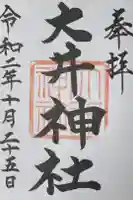 奉拝
大井神社
令和二年十月二十五日